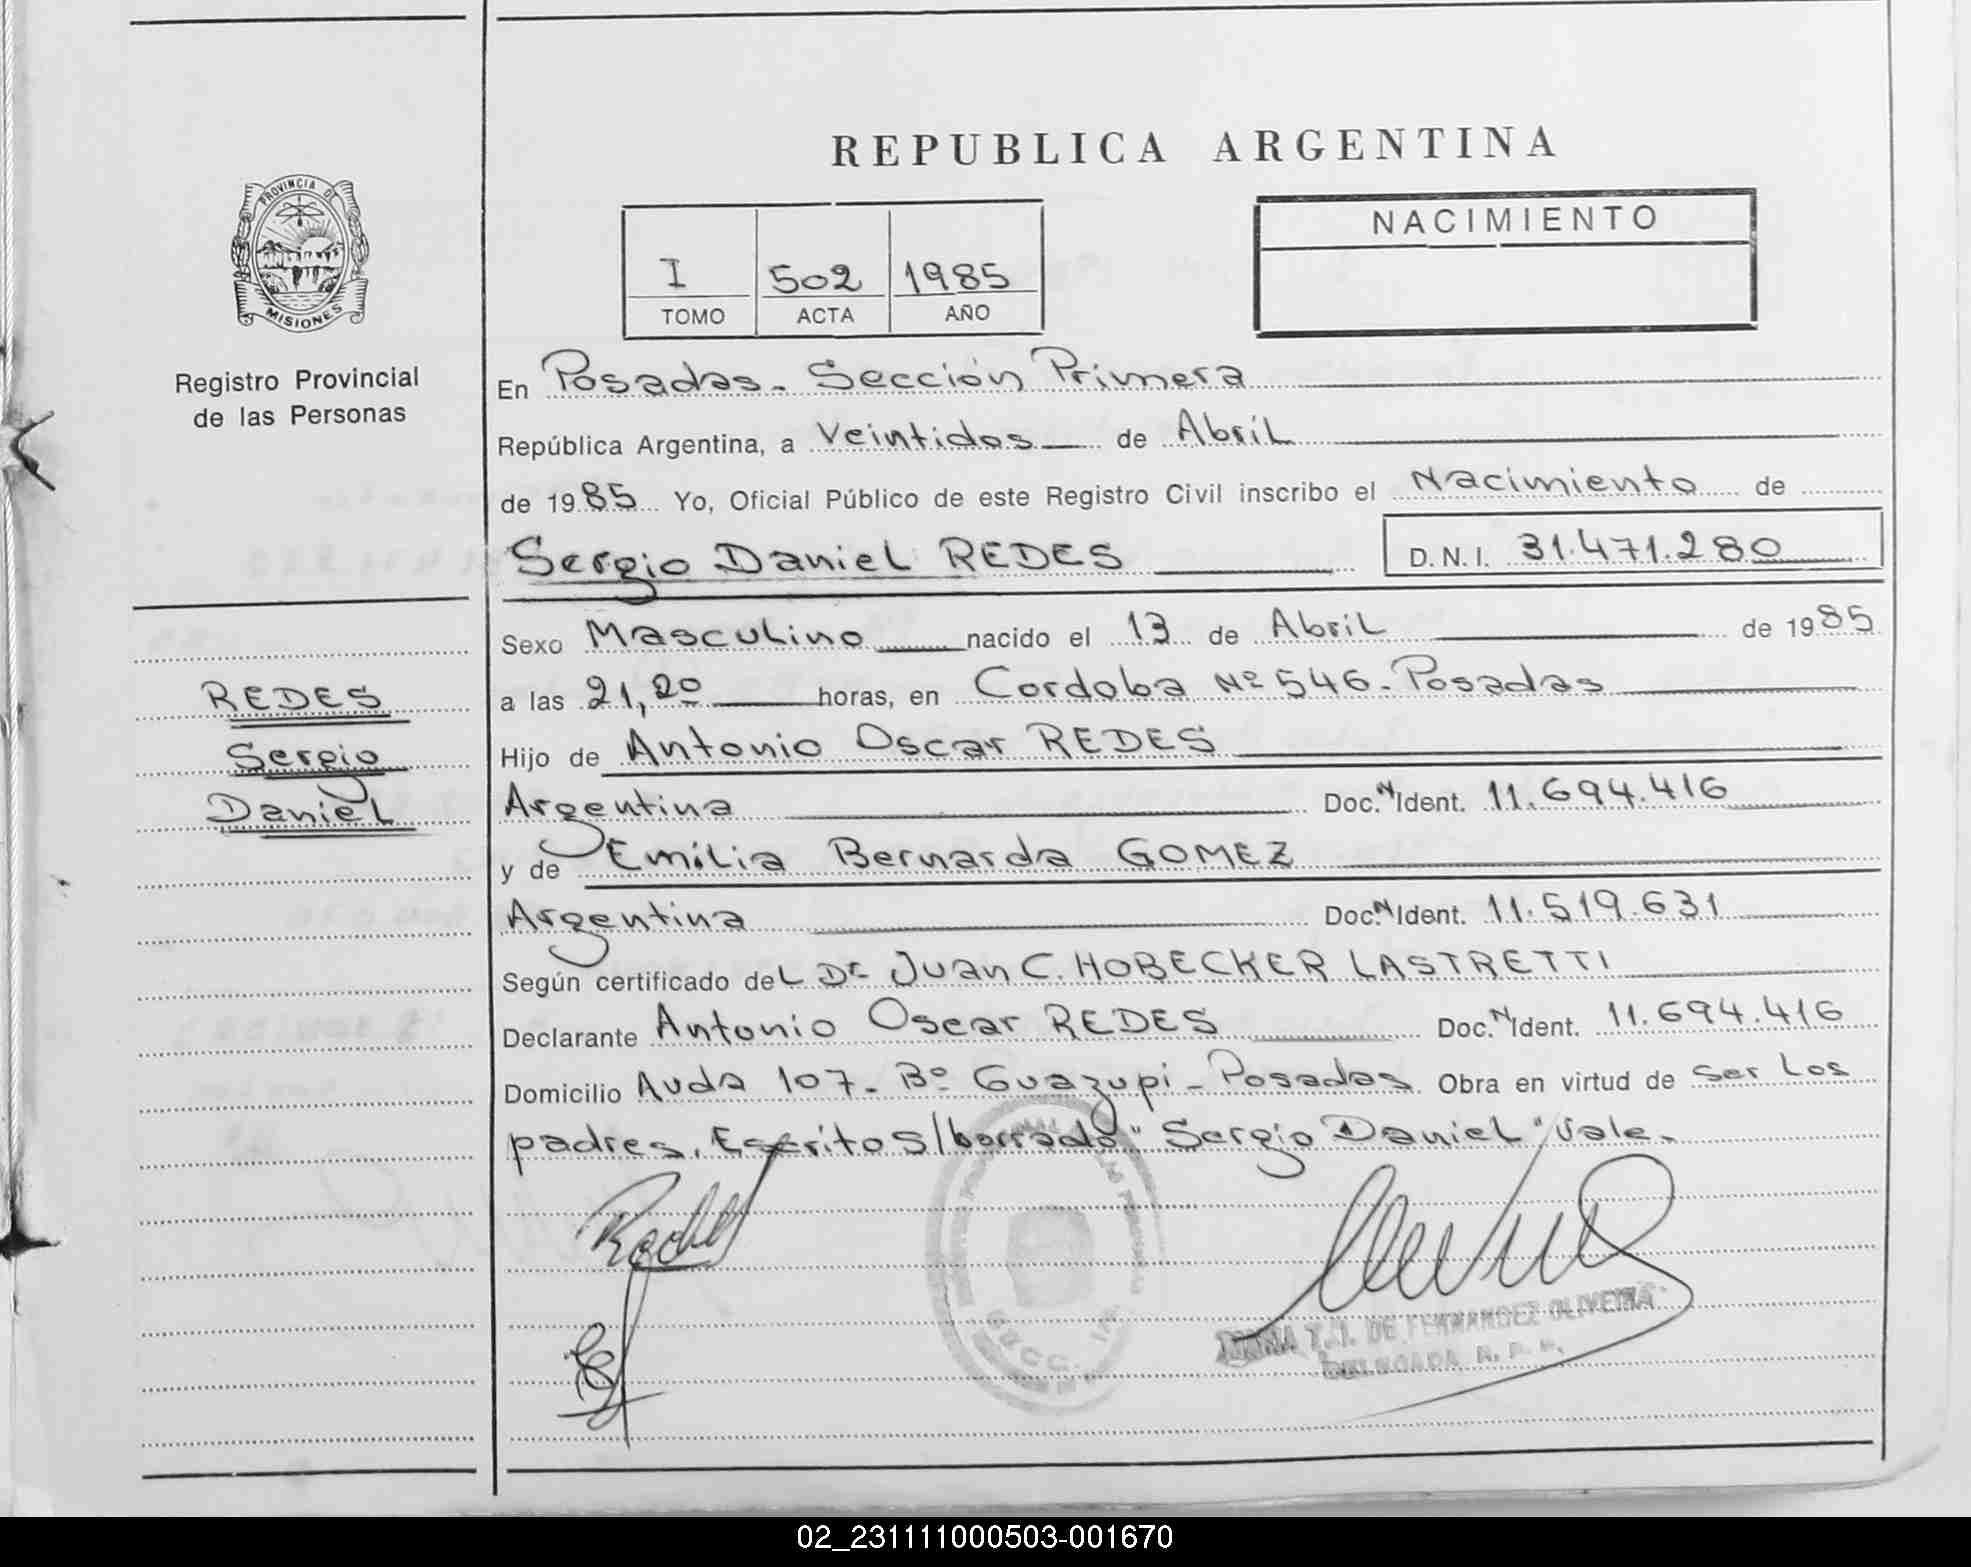 REPUBLICA ARGENTINA
PROVINCIA DE
MISIONES
Registro Provincial
de las Personas
I 502 1985
TOMO ACTA AÑO
NACIMIENTO
En Posadas. Sección Primera
República Argentina, a Veintidos de Abril
de 1985 Yo, Oficial Público de este Registro Civil inscribo el Nacimiento de
Sergio Daniel REDES D.N.I. 31.471.280
Sexo Masculino nacido el 13 de Abril de 1985
a las 21,20 horas, en Cordoba Nº 546. Posadas
Hijo de Antonio Oscar REDES
Argentina Doc. N Ident. 11.694.416
y de Emilia Bernarda GOMEZ
Argentina Doc. N Ident. 11.519.631
Según certificado del Dr Juan C. HOBECKER LASTRETTI
Declarante Antonio Oscar REDES Doc. N Ident. 11.694.416
Domicilio Avda 107. Bº Guazupi - Posadas Obra en virtud de ser los
padres. Escrito s/borrado "Sergio Daniel" Vale.
REDES
Sergio
Daniel
T. I. DE FERNANDEZ OLIVEIRA
DELEGADA R. P. P.
02_231111000503-001670